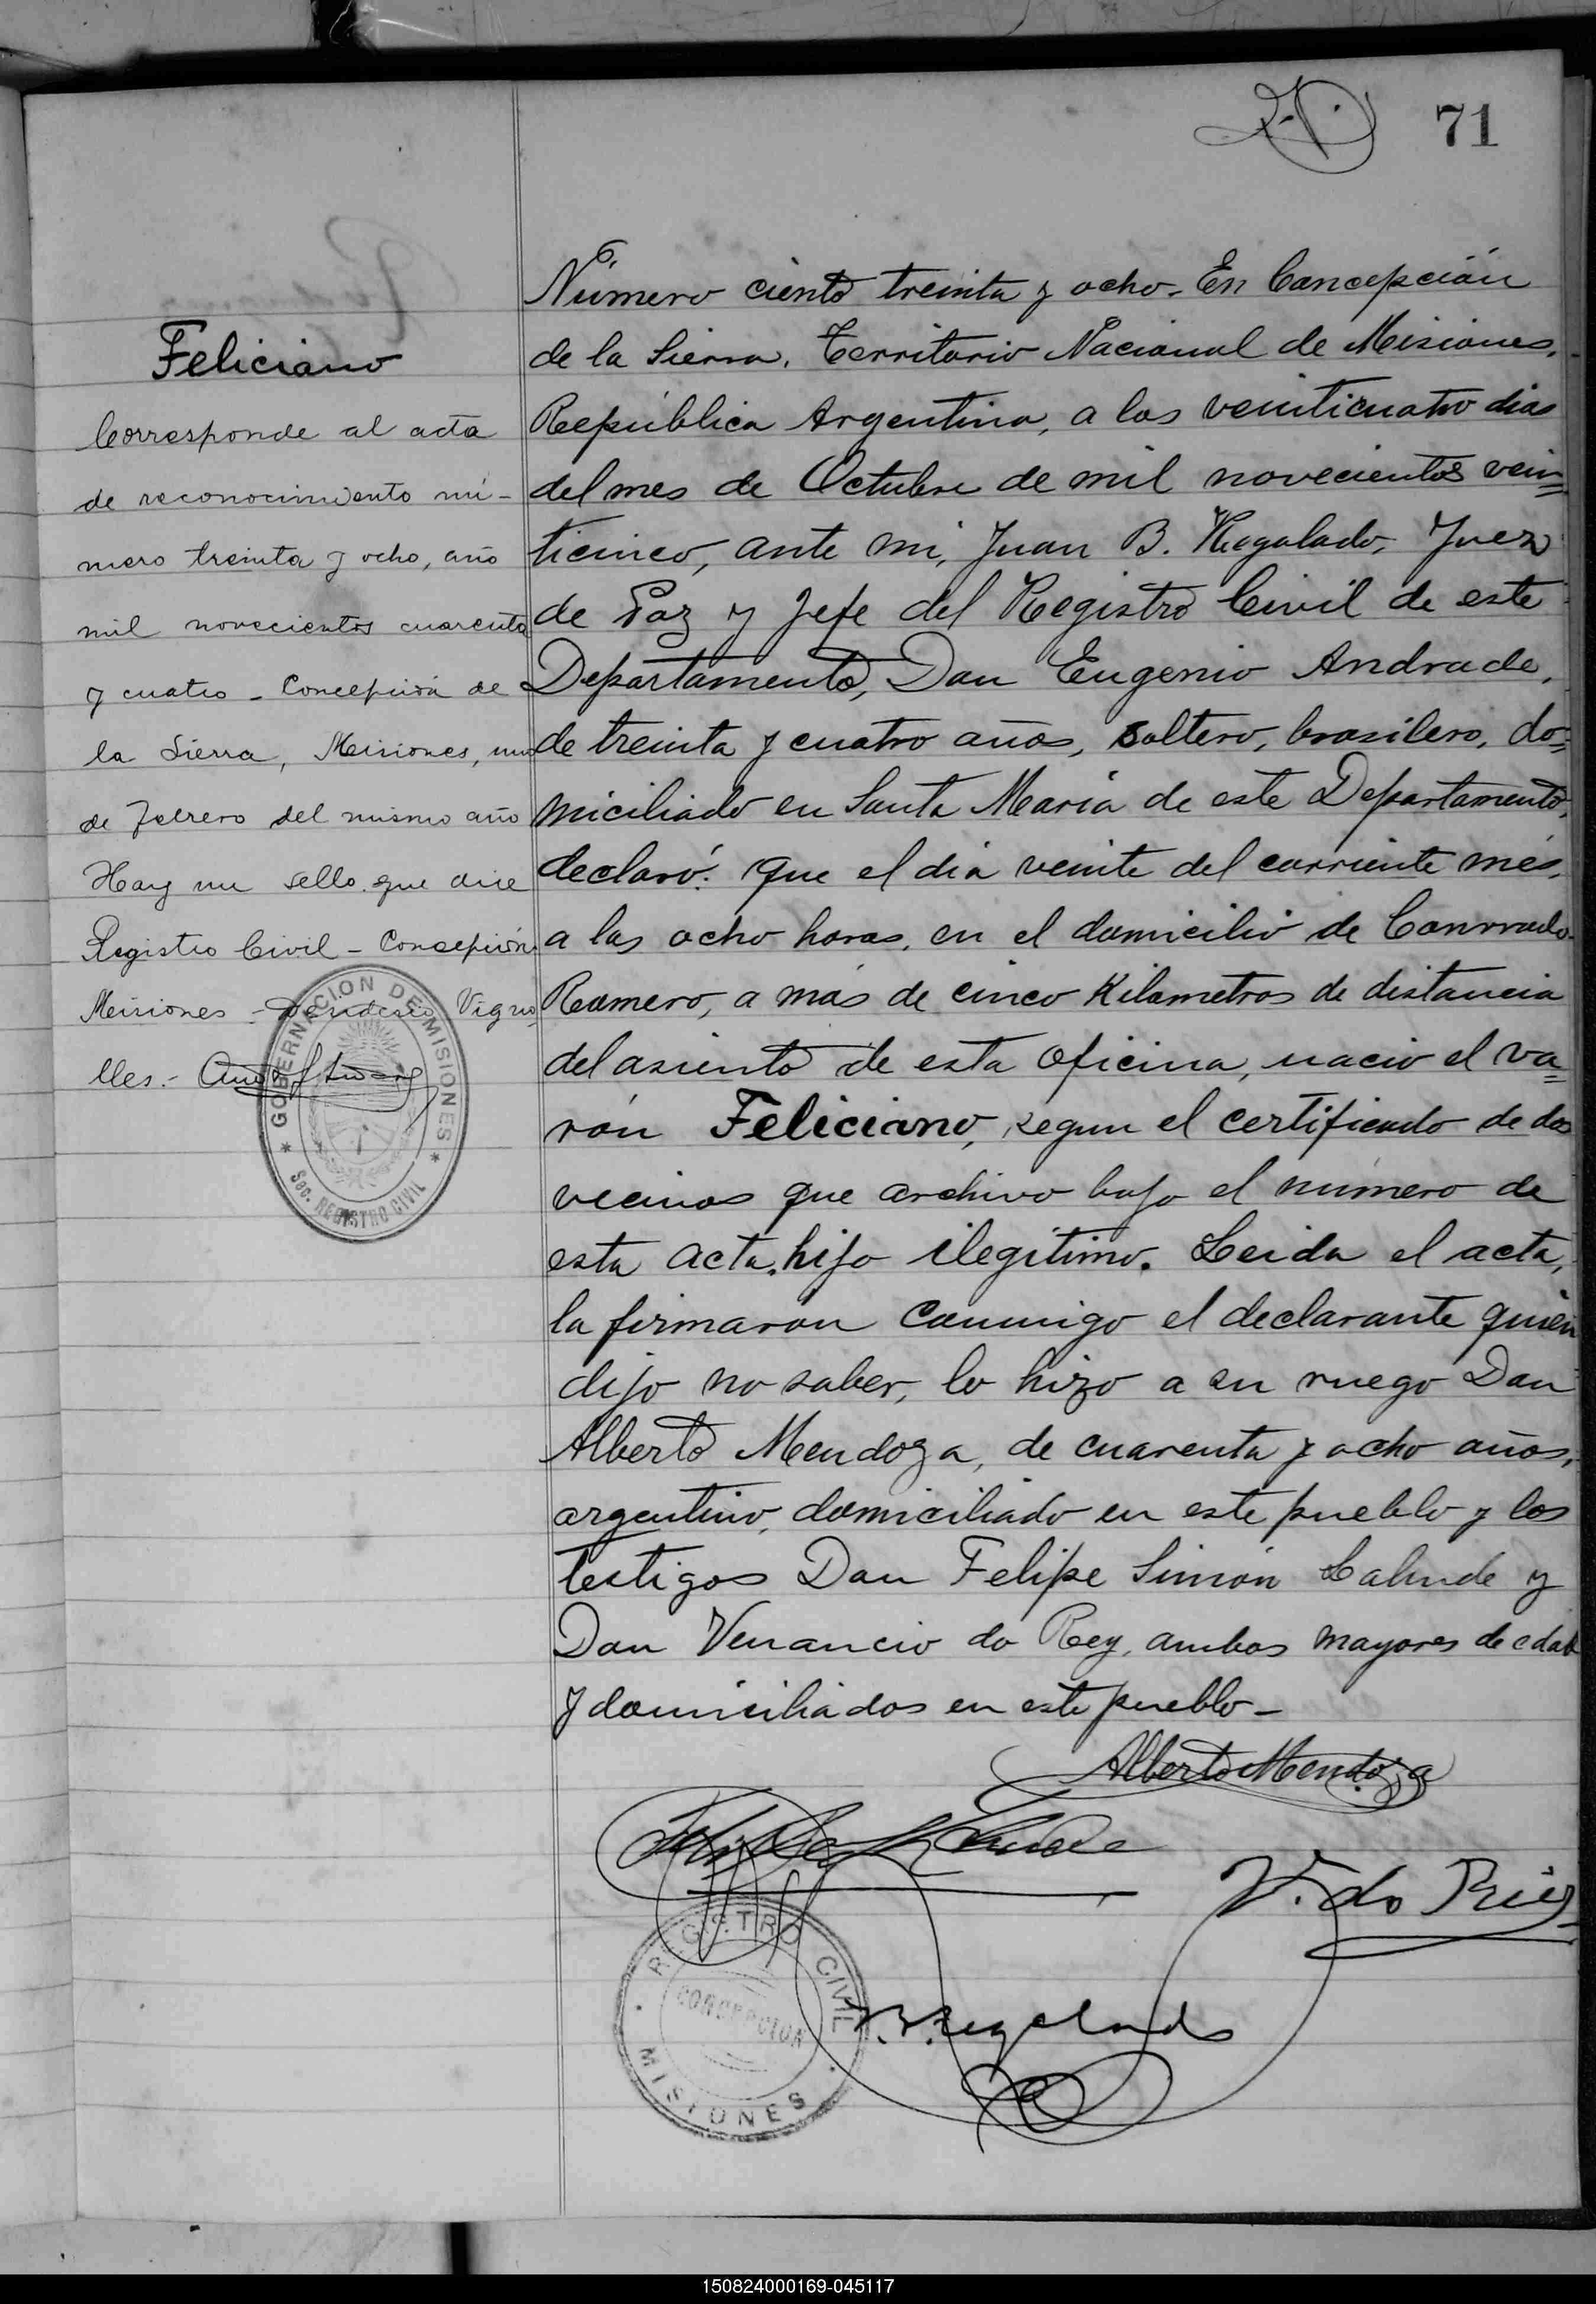 71
Feliciano
Corresponde al acta
de reconocimiento nú-
mero treinta y ocho, año
mil novecientos cuarenta
y cuatro - Concepción de
la Sierra, Misiones, uno
de Febrero del mismo año
Hay un sello que dice
Registro Civil - Concepción
Misiones - Vigno
lles.-
GOBERNACION DE MISIONES
Sec. REGISTRO CIVIL
Número ciento treinta y ocho. En Concepción
de la Sierra, Territorio Nacional de Misiones,
República Argentina, a los veinticuatro dias
del mes de Octubre de mil novecientos vein=
ticinco, ante mi, Juan B. Regalado, Juez
de Paz y Jefe del Registro Civil de este
Departamento, Don Eugenio Andrade,
de treinta y cuatro años, soltero, brasilero, do=
miciliado en Santa María de este Departamento,
declaró: Que el día veinte del corriente mes,
a las ocho horas, en el domicilio de Conrrado
Romero, a más de cinco Kilometros de distancia
del asiento de esta Oficina, nacio el va=
rón Feliciano, segun el certificado de dos
vecinos que archivo bajo el número de
esta acta, hijo ilegítimo. Leida el acta,
la firmaron conmigo el declarante quien
dijo no saber, lo hizo a su ruego Don
Alberto Mendoza, de cuarenta y ocho años,
argentino, domiciliado en este pueblo y los
testigos Don Felipe Simón Lalinde y
Don Venancio do Rey, ambos mayores de edad
y domiciliados en este pueblo -
Alberto Mendoza
V. do Rey
REGISTRO CIVIL
CONCEPCION
MISIONES
J.B. Regalado
150824000169-045117